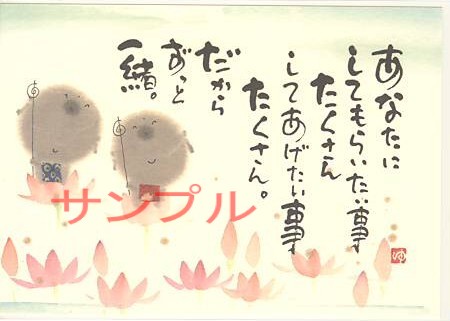 あなたに
してもらいたい事
たくさん
してあげたい事
たくさん。
だから
ずっと
一緒。
サンプル